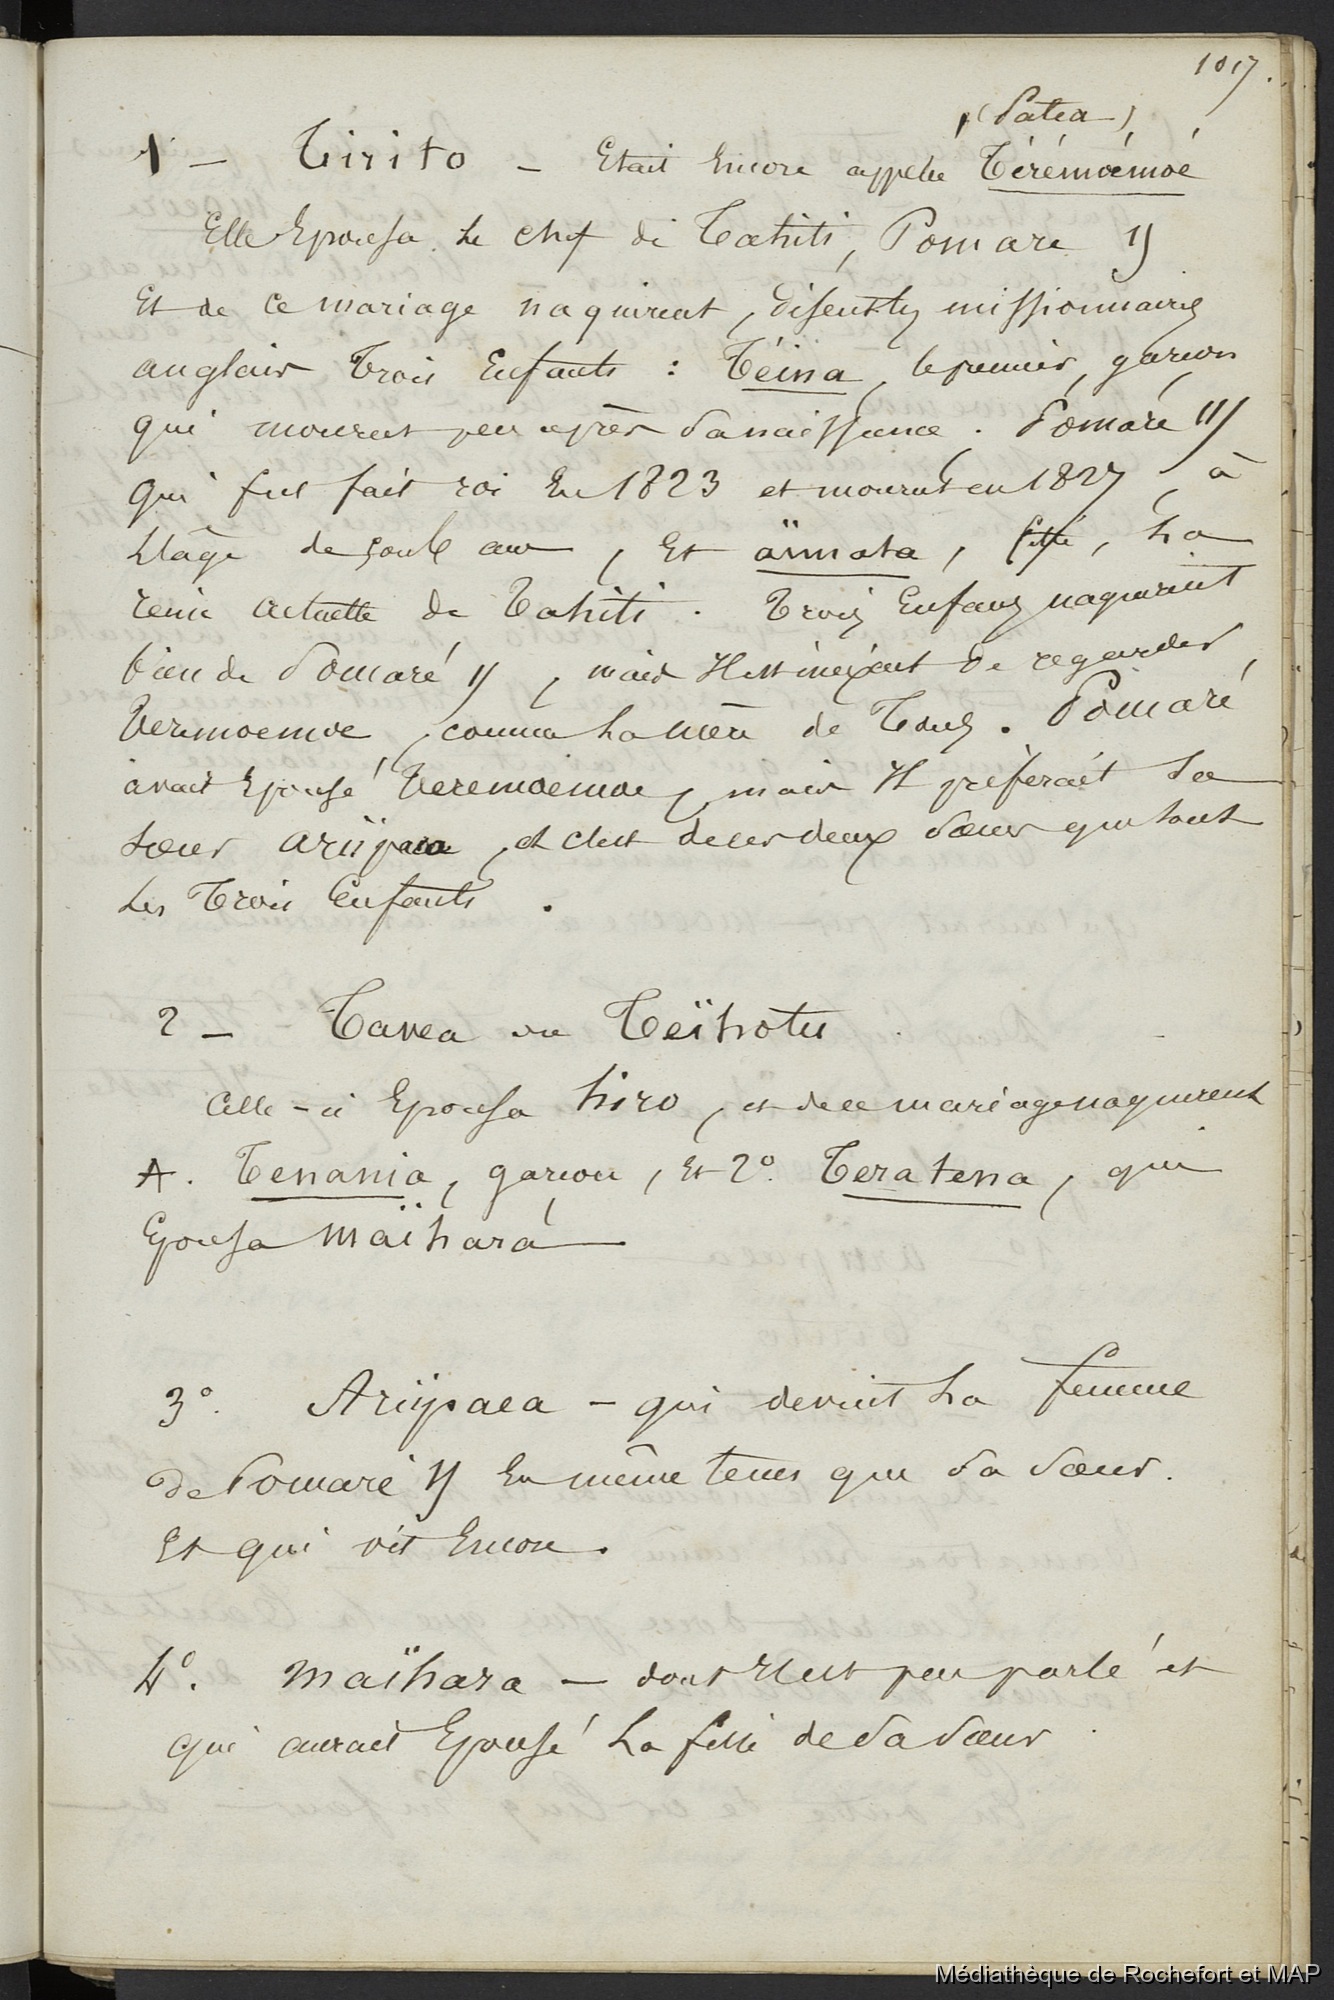 1017.
(Patea)
1 - Tirito - Etait Encore appelée Térémoémoé
Elle Epousa le chef de Tahiti, Pomare II
Et de ce mariage naquirent, disent les missionnaires
anglais trois Enfants : Téina, le premier, garçon
qui mourut peu après sa naissance. Pomaré III
qui fut fait roi En 1823 et mourut en 1827, à
l'âge de sept ans, Et aïmata, fille, la
reine actuelle de Tahiti. Trois Enfans naquirent
bien de Pomaré II, mais Il est inexact de regarder
Teremoemoe, comme la mère de Tous. Pomaré
avait Epousé Teremoemoe, mais Il préférait sa
sœur ariipaea, et c'est de ces deux sœurs que sont
les trois Enfants.
2 - Tavea ou Teïhotu
Celle-ci Epousa hiro, et de ce mariage naquirent
1. Tenania, garçon, Et 2º. Teratena, qui
Epousa maïhara
3º. Ariipaea - qui devint la femme
de Pomaré II En même tems que sa sœur.
Et qui vit Encore.
4º. maïhara - dont Il est peu parlé et
qui aurait Epousé la fille de sa sœur
Médiathèque de Rochefort et MAP